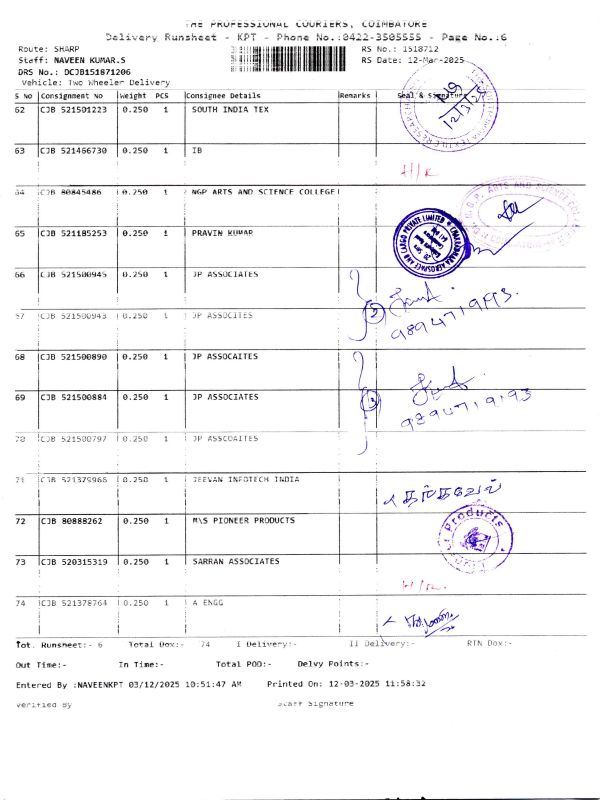 THE PROFESSIONAL COURIERS, COIMBATORE
Delivery Runsheet - KPT - Phone No.:0422-3505555 - Page No.:6
Route: SHARP RS No.: 1518712
Staff: NAVEEN KUMAR.S RS Date: 12-Mar-2025
DRS No.: DCJB151871206
Vehicle: Two Wheeler Delivery
S No Consignment No Weight PCS Consignee Details Remarks Seal & Signature
62 CJB 521501223 0.250 1 SOUTH INDIA TEX
12/3/25
63 CJB 521466730 0.250 1 IB
H/R
64 CJB 80845486 0.250 1 NGP ARTS AND SCIENCE COLLEGE
65 CJB 521185253 0.250 1 PRAVIN KUMAR
66 CJB 521500945 0.250 1 JP ASSOCIATES
67 CJB 521500943 0.250 1 JP ASSOCITES
2
9894719193
68 CJB 521500890 0.250 1 JP ASSOCAITES
69 CJB 521500884 0.250 1 JP ASSOCIATES
3
9894719193
70 CJB 521500797 0.250 1 JP ASSCOAITES
71 CJB 521379966 0.250 1 JEEVAN INFOTECH INDIA
கதிர்வேல்
72 CJB 80888262 0.250 1 M\S PIONEER PRODUCTS
Products
73 CJB 520315319 0.250 1 SARRAN ASSOCIATES
H/R
74 CJB 521378764 0.250 1 A ENGG
Tot. Runsheet:- 6 Total Dox:- 74 I Delivery:- II Delivery:- RTN Dox:-
Out Time:- In Time:- Total POD:- Delvy Points:-
Entered By :NAVEENKPT 03/12/2025 10:51:47 AM Printed On: 12-03-2025 11:58:32
Verified By Staff Signature